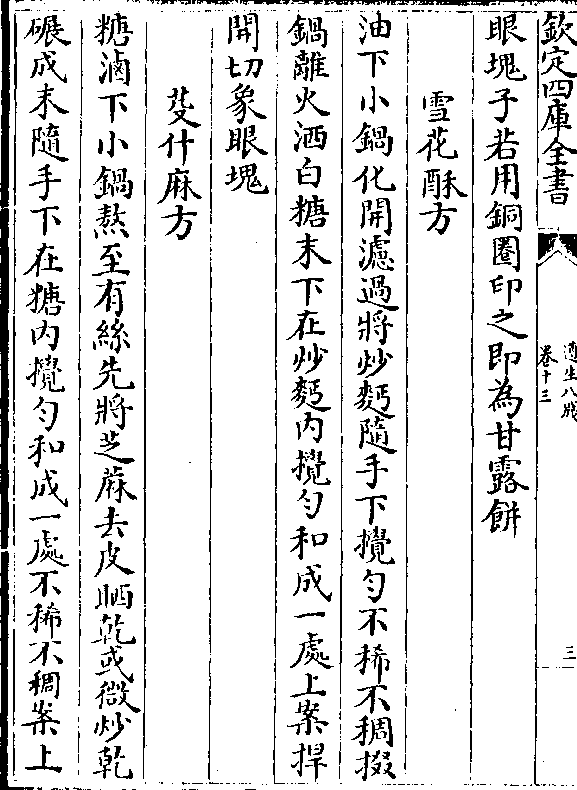 欽定四庫全書
遵生八牋
卷十三
三
眼塊子若用銅圏印之即為甘露餅
雪花酥方
油下小鍋化開濾過將炒麪隨手下攪勻不稀不稠掇
鍋離火洒白糖末下在炒麪内攪勻和成一處上案捍
開切象眼塊
芟什麻方
糖滷下小鍋熬至有絲先將芝蔴去皮晒乾或微炒乾
碾成末隨手下在糖内攪勻和成一處不稀不稠案上